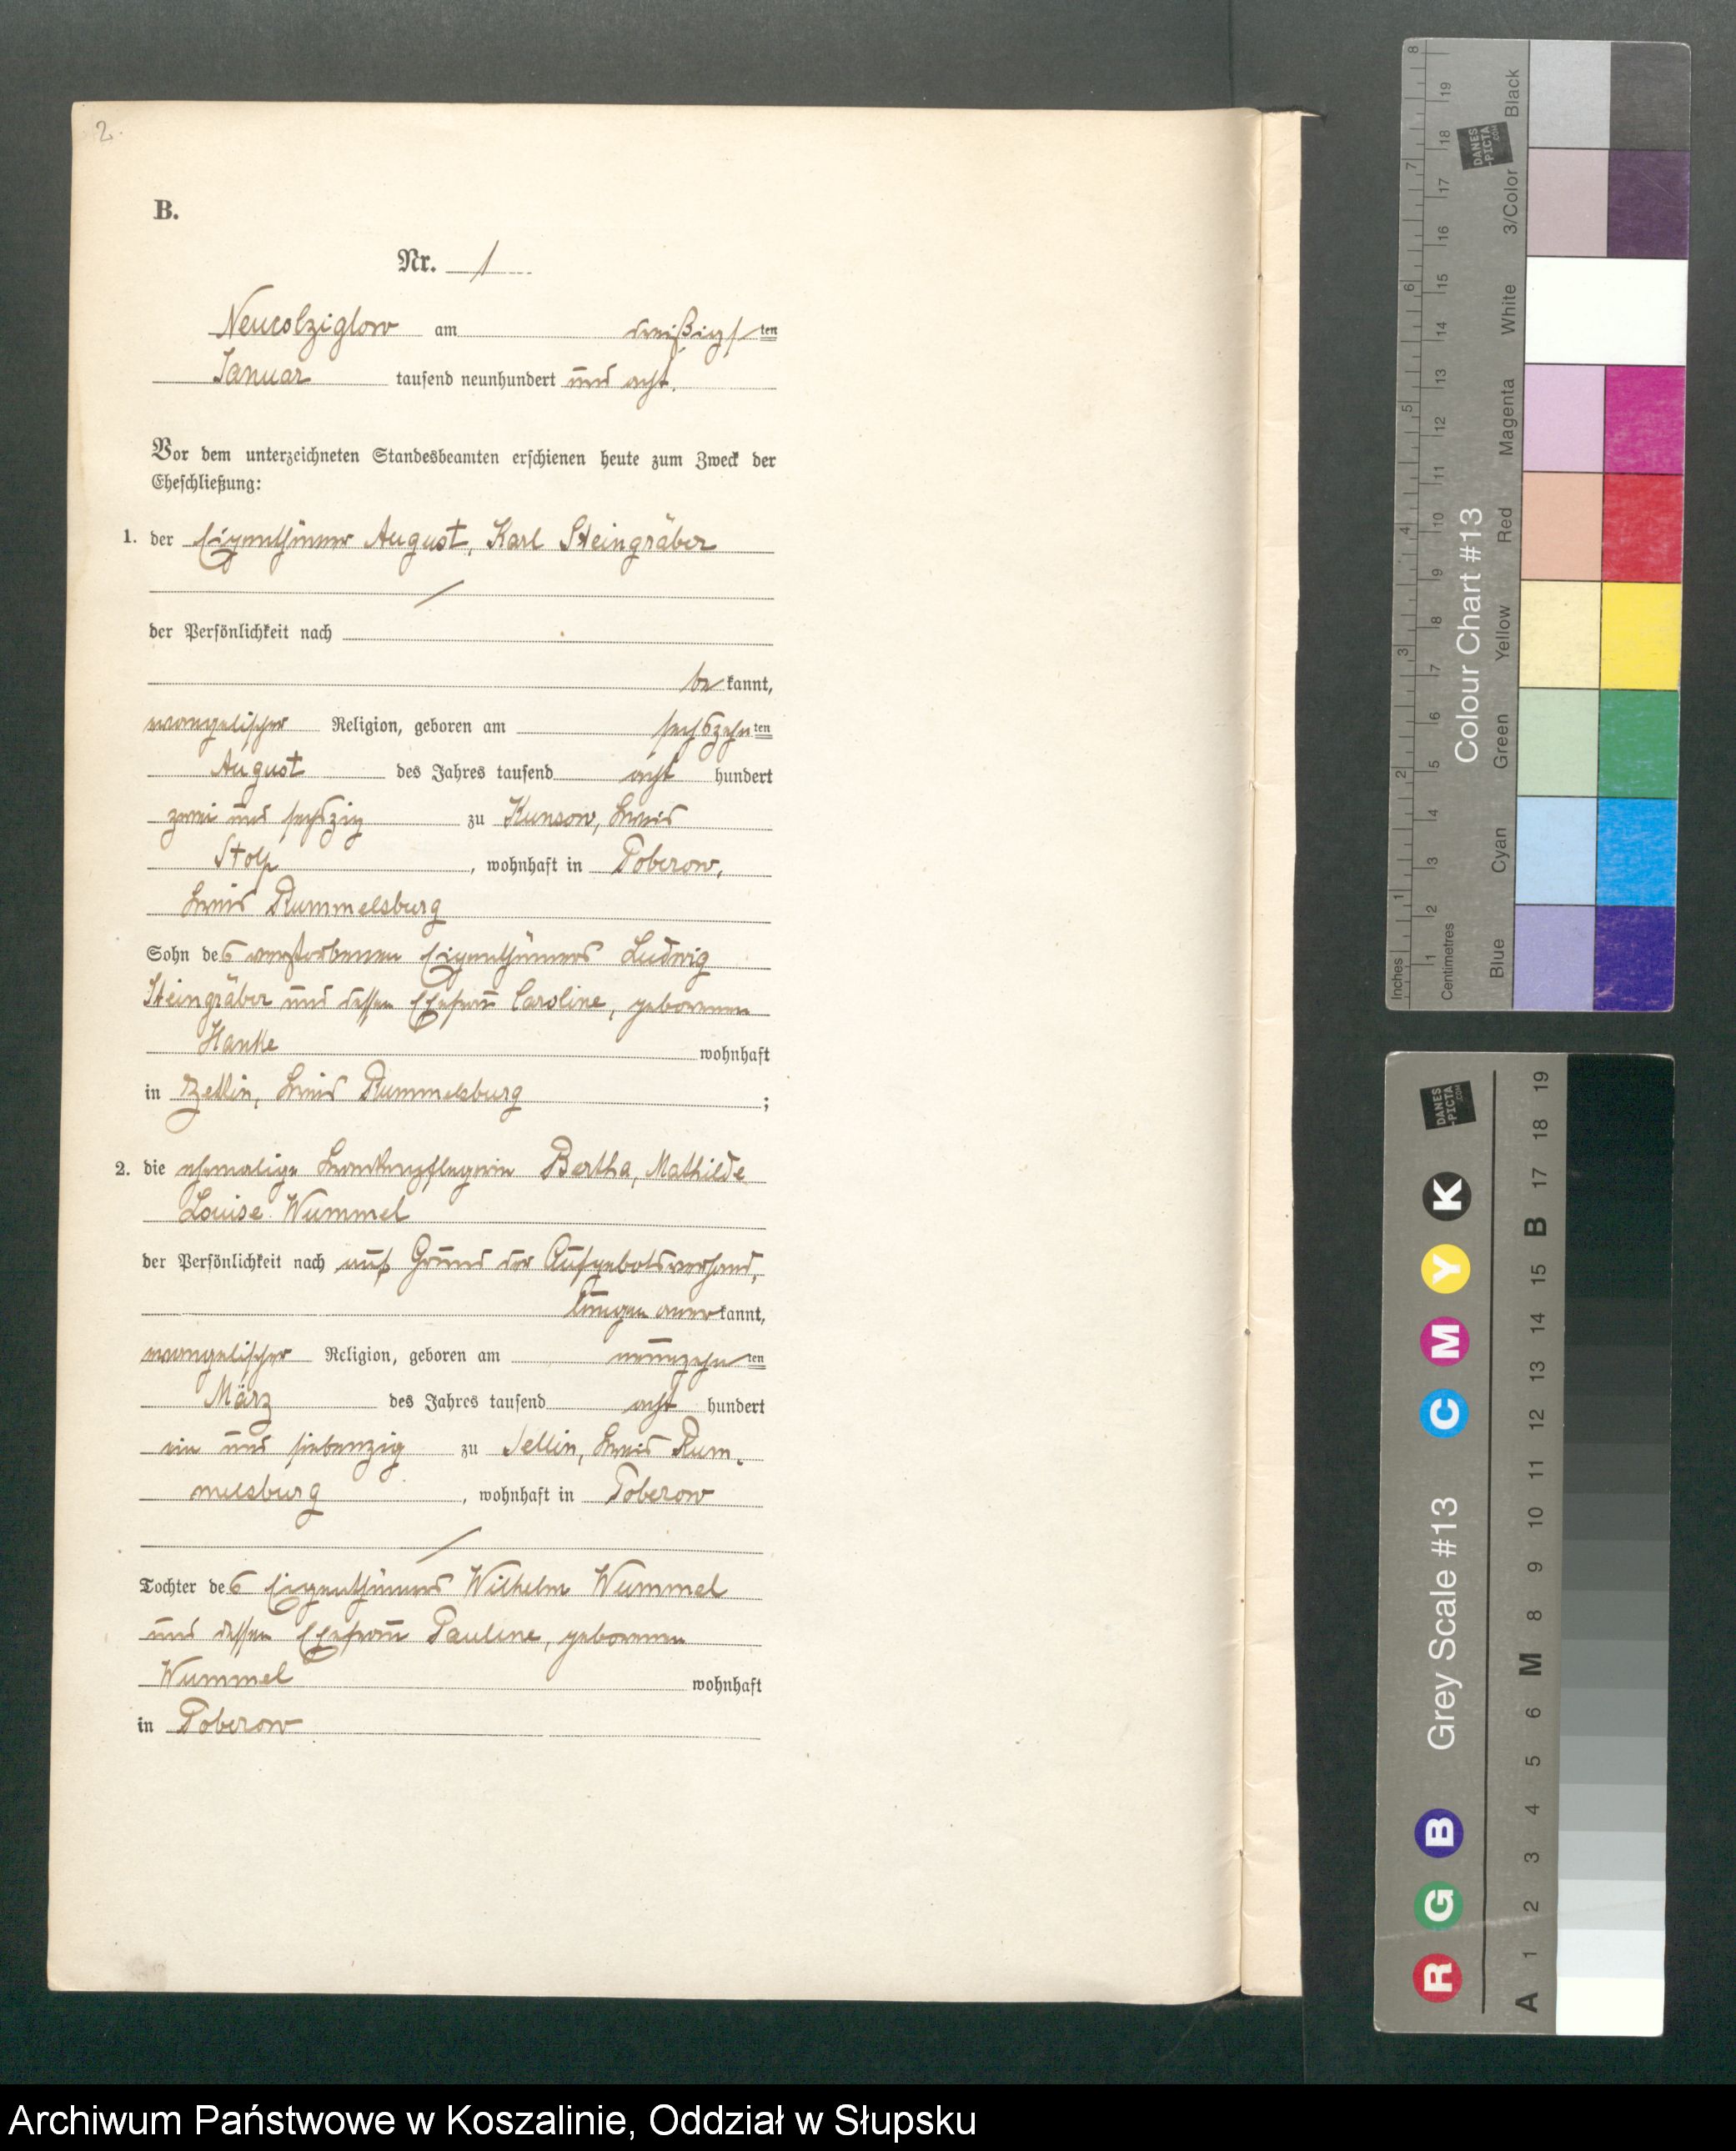 2.
B.
Nr. 1
Neucolziglow am dreißigsten
Januar tausend neunhundert und acht.
Vor dem unterzeichneten Standesbeamten erschienen heute zum Zweck der
Eheschließung:
1. der Eigenthümer August, Karl Steingräber
der Persönlichkeit nach
be kannt,
evangelischer Religion, geboren am sechszehn ten
August des Jahres tausend acht hundert
zwei und sechszig zu Kunsow, Kreis
Stolp, wohnhaft in Poberow,
Kreis Rummelsburg
Sohn des verstorbenen Eigenthümers Ludwig
Steingräber und dessen Ehefrau Caroline, geborenen
Hanke wohnhaft
in Zettin, Kreis Rummelsburg ;
2. die ehemalige Krankenpflegerin Bertha, Mathilde
Louise Wummel
der Persönlichkeit nach auf Grund der Aufgebotsverhand,
lungen aner kannt,
evangelischer Religion, geboren am neunzehn ten
März des Jahres tausend acht hundert
ein und siebenzig zu Sellin, Kreis Rum,
melsburg, wohnhaft in Poberow
Tochter des Eigenthümers Wilhelm Wummel
und dessen Ehefrau Pauline, geborenen
Wummel wohnhaft
in Poberow
Archiwum Państwowe w Koszalinie, Oddział w Słupsku
Colour Chart #13
Blue Cyan Green Yellow Red Magenta White 3/Color Black
Inches 1 2 3 4 5 6 7 8
Centimetres 1 2 3 4 5 6 7 8 9 10 11 12 13 14 15 16 17 18 19
DANES
-PICTA
.COM
Grey Scale #13
R G B C M Y K
A 1 2 3 4 5 6 M 8 9 10 11 12 13 14 15 B 17 18 19
DANES
-PICTA
.COM